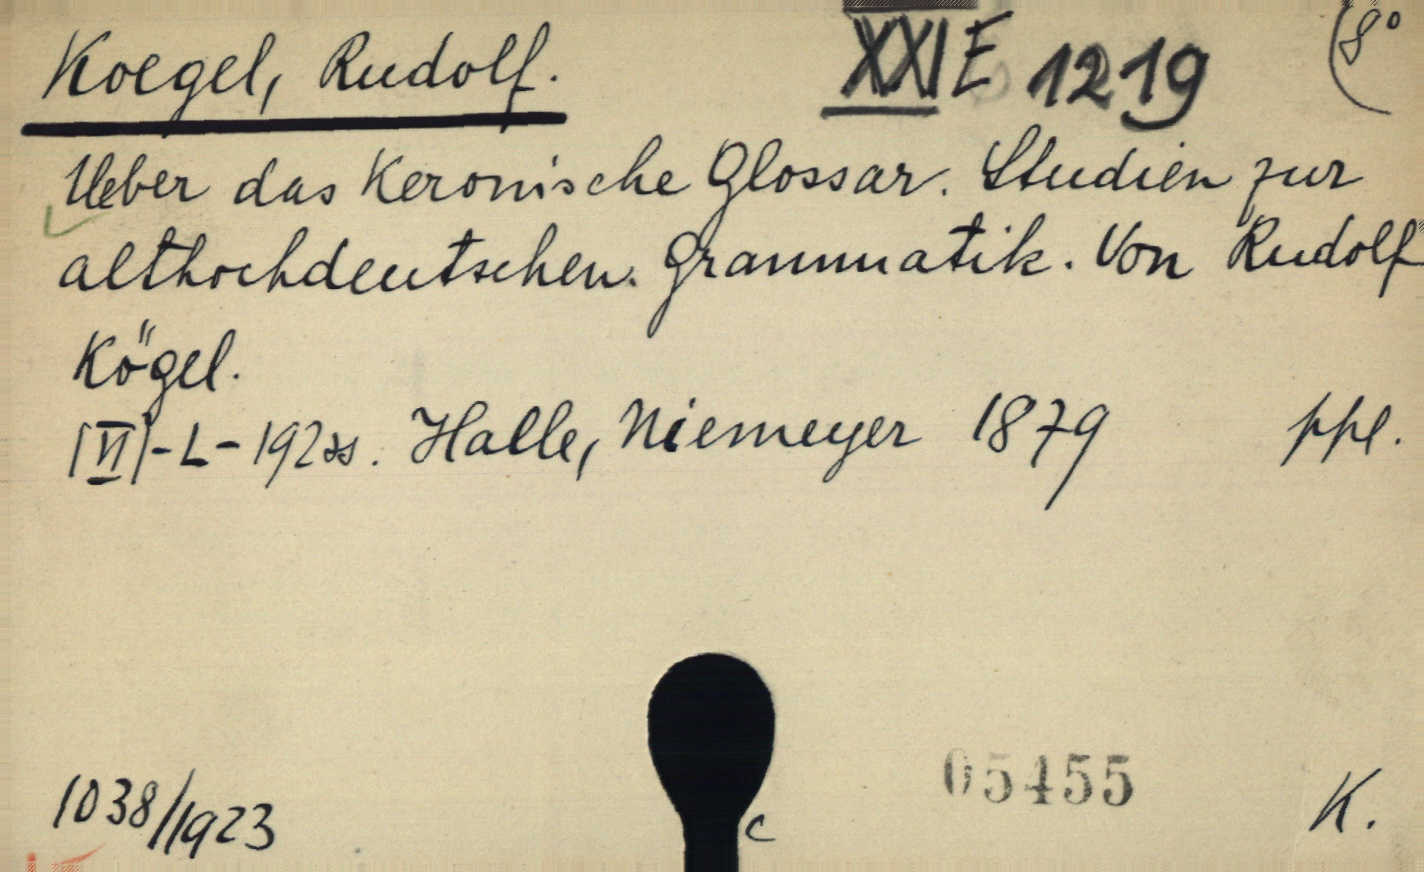 Koegel, Rudolf. XXI E 1219 (8°
Ueber das Keronische Glossar. Studien zur
althochdeutschen. Grammatik. Von Rudolf
Kögel.
[VI]-L-192ss. Halle, Niemeyer 1879 ppl.
05455
1038/1923 c K.